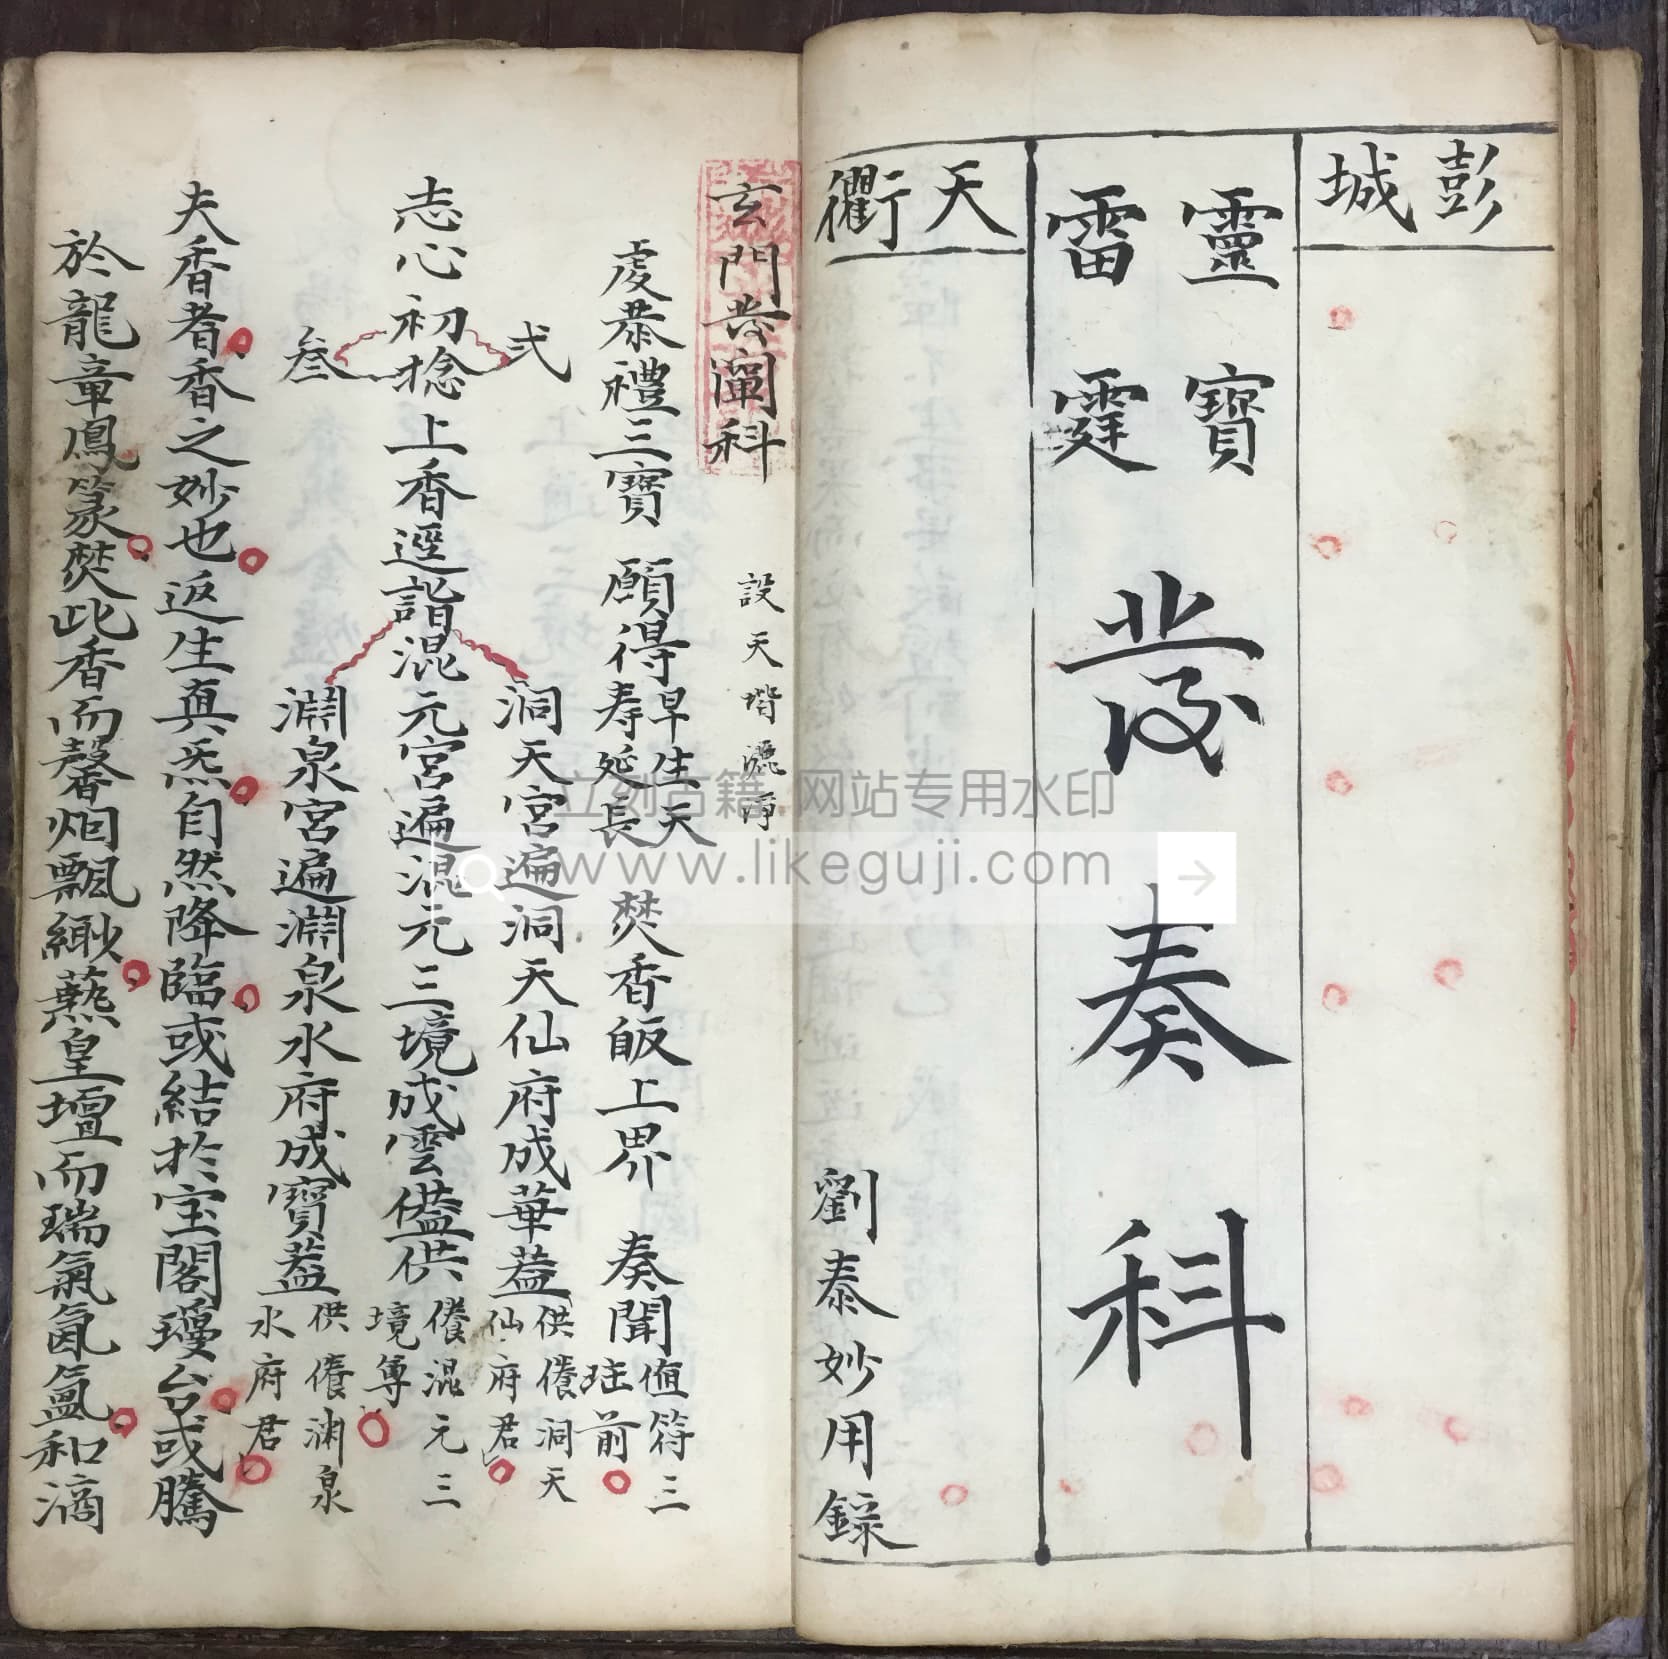 彭城
靈寶
雷霆
發奏科
天衢
劉泰妙用錄
玄門發闡科 設天堦灑淨
虔恭禮三寶 願得早生天 壽延長 焚香皈上界 奏聞 值符三 前
弍 洞天宮遍洞天仙府成華蓋 供養洞天 仙府君
志心初捻上香逕詣混元宮遍混元三境成雲盖供 養混元三 境尊
叁 淵泉宮遍淵泉水府成寶蓋 供養渊泉 水府君
夫香者香之妙也返生真炁自然降臨或結於宝閣瓊台或騰
於龍章鳳篆焚此香而馨烟飄緲爇皇壇而瑞氣氤氳和滴
立刻古籍 网站专用水印
www.likeguji.com